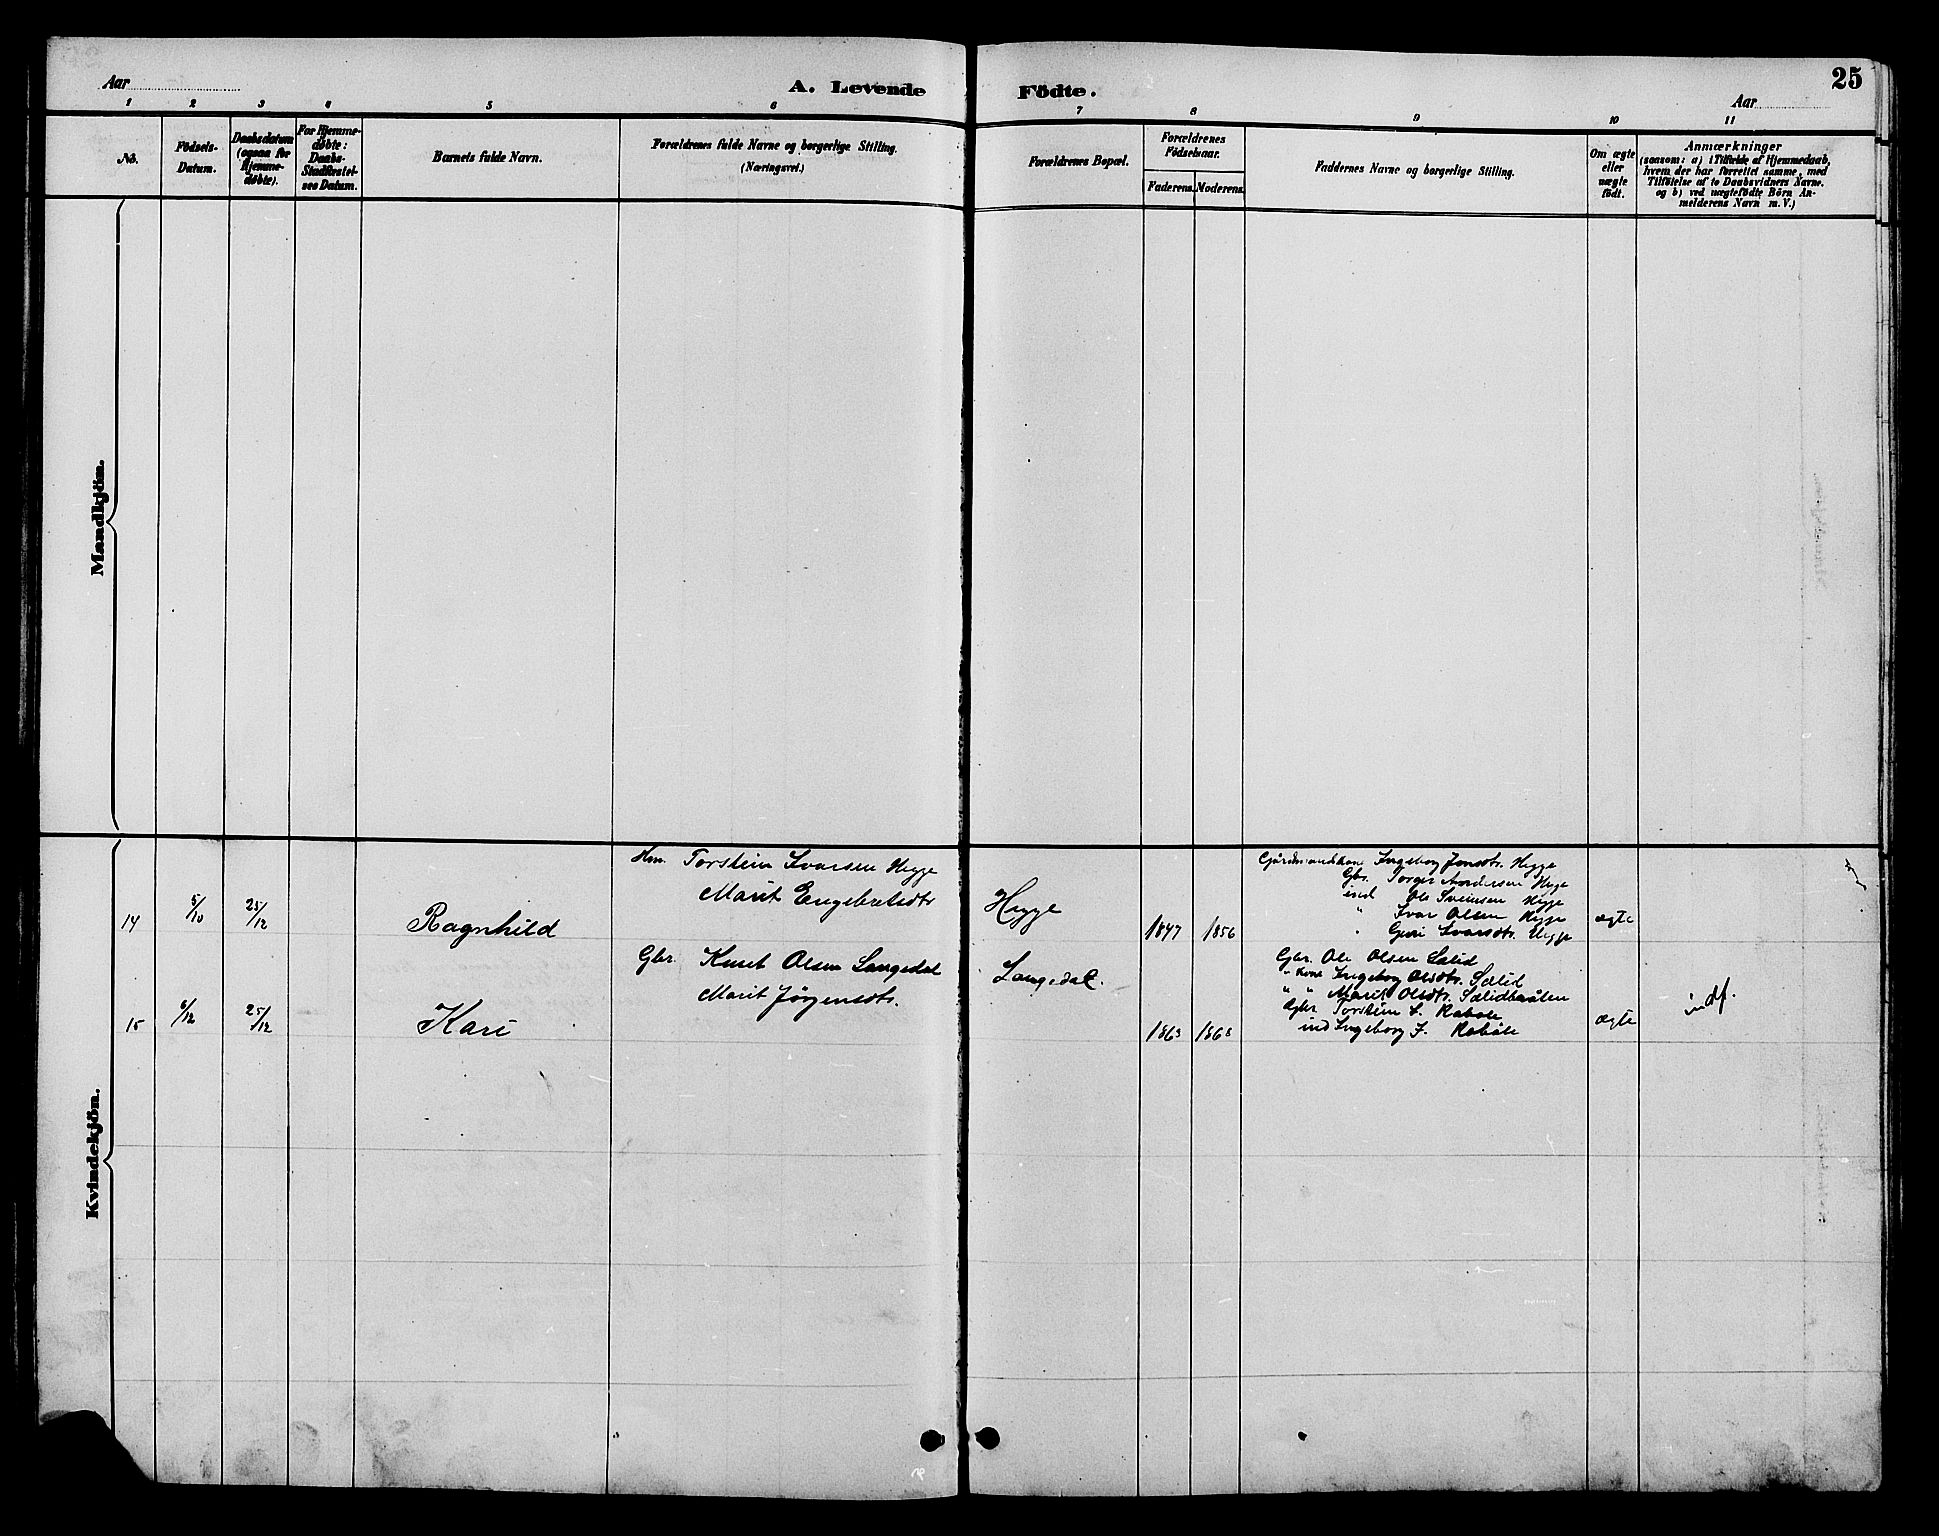 Aar
A. Levende Födte.
Aar
25
1 2 3 4 5 6 7 8 9 10 11
No.
Födsels-
Datum.
Daabsdatum
(ogsaa for
Hjemme-
døbte).
For Hjemme-
døbte:
Daabs-
Stadfæstel-
ses Datum.
Barnets fulde Navn.
Forældrenes fulde Navne og borgerlige Stilling.
(Næringsvei.)
Forældrenes Bopæl.
Forældrenes
Födselsaar.
Faderens. Moderens.
Faddernes Navne og borgerlige Stilling.
Om ægte
eller
uægte
født.
Anmærkninger
(saasom: a) i Tilfælde af Hjemmedaab,
hvem der har forrettet samme, med
Tilføielse af to Daabsvidners Navne.
og b) ved uægtefødte Börn An-
melderens Navn m. V.)
Mandkjön.
Kvindekjön.
14 5/10 25/12 Ragnhild
Hm. Torstein Ivarsen Hegge
Marit Engebretsdtr
Hegge
1847 1856
Gårdmandskone Ingeborg Jonsdtr. Hegge
Gbr. Torger Andersen Hegge
ind Ole Sveinsen Hegge
" Ivar Olsen Hegge
" Guri Ivarsdtr. Hegge
ægte
15 6/12 25/12 Kari
Gbr. Knut Olsen Langedal
Marit Jørgensdtr.
Langedal.
1863 1868
Gbr. Ole Olsen Sælid
" kone Ingeborg Olsdtr. Sælid
" " Marit Olsdtr. Sælidbråten
Gbr Torstein S. Rabøle
ind Ingeborg J. Rabøle
ægte
indf.